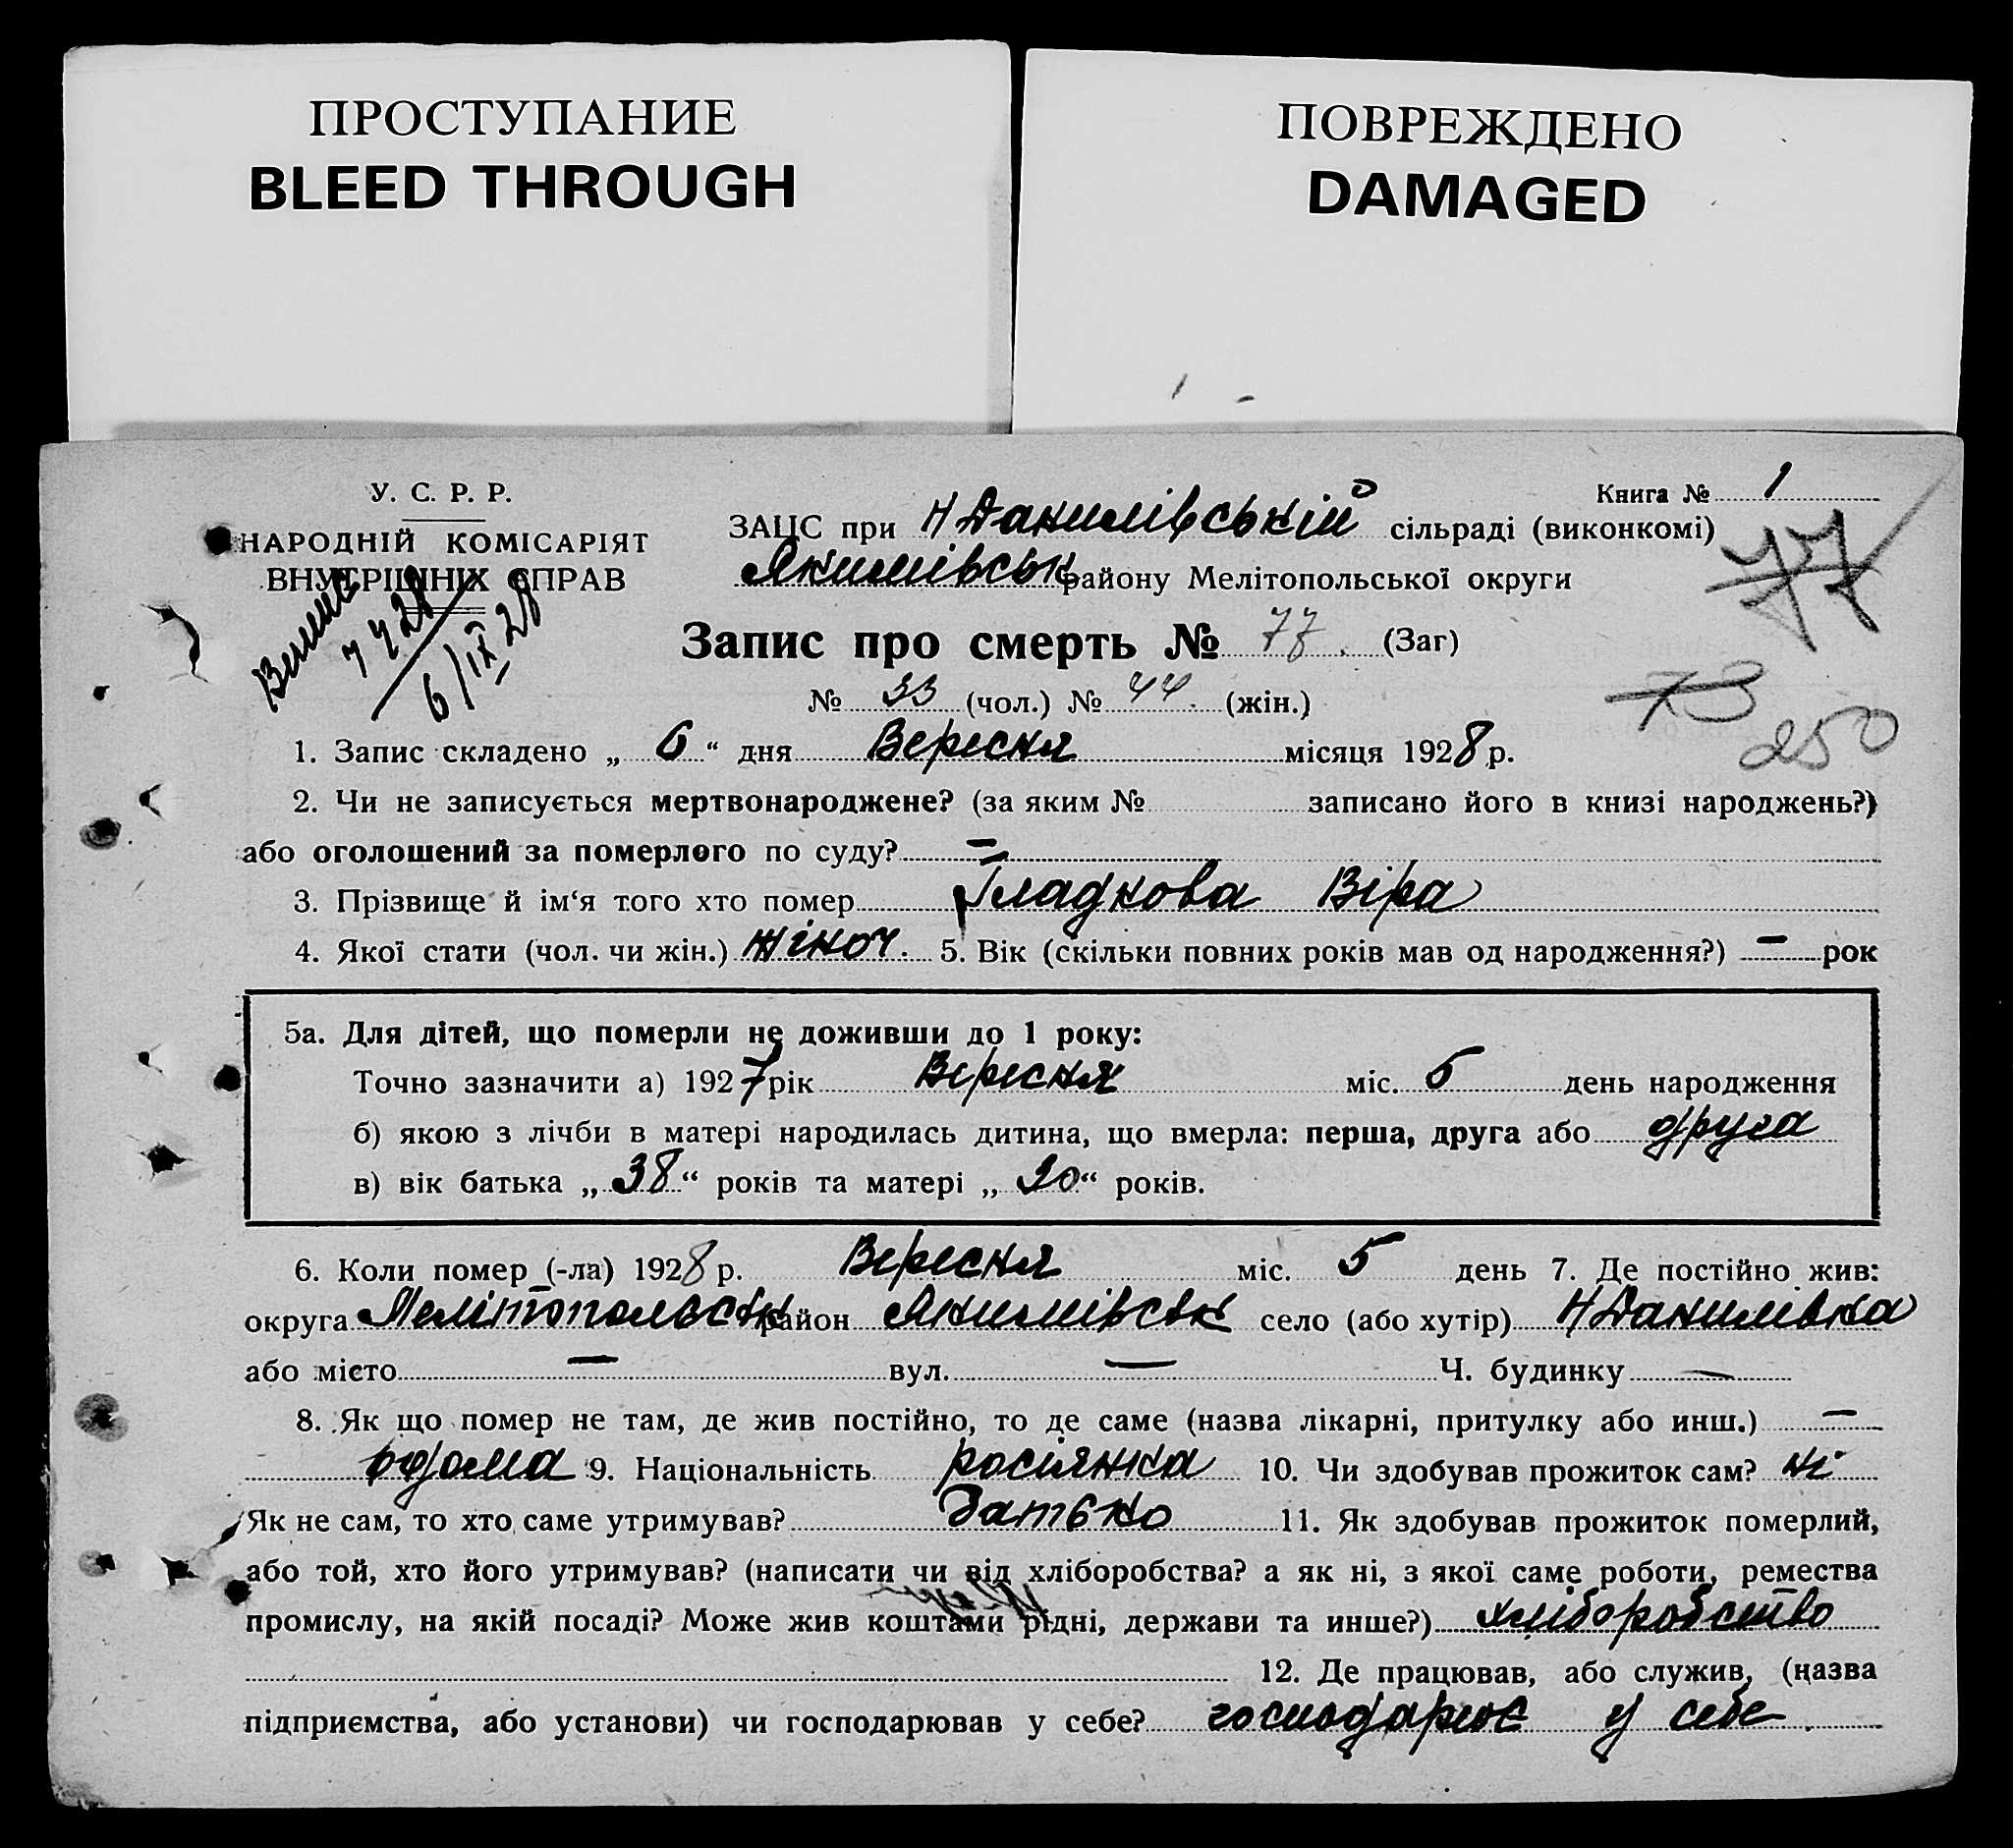 ПРОСТУПАНИЕ
BLEED THROUGH
ПОВРЕЖДЕНО
DAMAGED
У. С. Р. Р.
НАРОДНІЙ КОМІСАРІЯТ
ВНУТРІШНІХ СПРАВ
6/IX 28
Книга № 1
ЗАЦС при Н Данилівській сільраді (виконкомі)
Якимівськ району Мелітопольської округи
77
Запис про смерть № 77. (Заг)
№ 33 (чол.) № 44. (жін.)
73
250
1. Запис складено „ 6 “ дня Вересня місяця 1928 р.
2. Чи не записується мертвонароджене? (за яким № записано його в книзі народжень?)
або оголошений за померлого по суду? —
3. Прізвище й ім‘я того хто помер Гладкова Віра
4. Якої стати (чол. чи жін.) жіноч. 5. Вік (скільки повних років мав од народження?) — рок
5а. Для дітей, що померли не доживши до 1 року:
Точно зазначити а) 1927 рік Вересня міс. 5 день народження
б) якою з лічби в матері народилась дитина, що вмерла: перша, друга або друга
в) вік батька „ 38 “ років та матері „ “ років.
6. Коли помер (-ла) 1928 р. Вересня міс. 5 день 7. Де постійно жив:
округа Мелітопольськ район Якимівськ село (або хутір) Н Данилівка
або місто — вул. — Ч. будинку —
8. Як що помер не там, де жив постійно, то де саме (назва лікарні, притулку або инш.) —
вдома 9. Національність росіянка 10. Чи здобував прожиток сам? ні
Як не сам, то хто саме утримував? Батько 11. Як здобував прожиток померлий,
або той, хто його утримував? (написати чи від хліборобства? а як ні, з якої саме роботи, ремества
промислу, на якій посаді? Може жив коштами рідні, держави та инше?) хліборобство
12. Де працював, або служив, (назва
підприємства, або установи) чи господарював у себе? господарює у себе